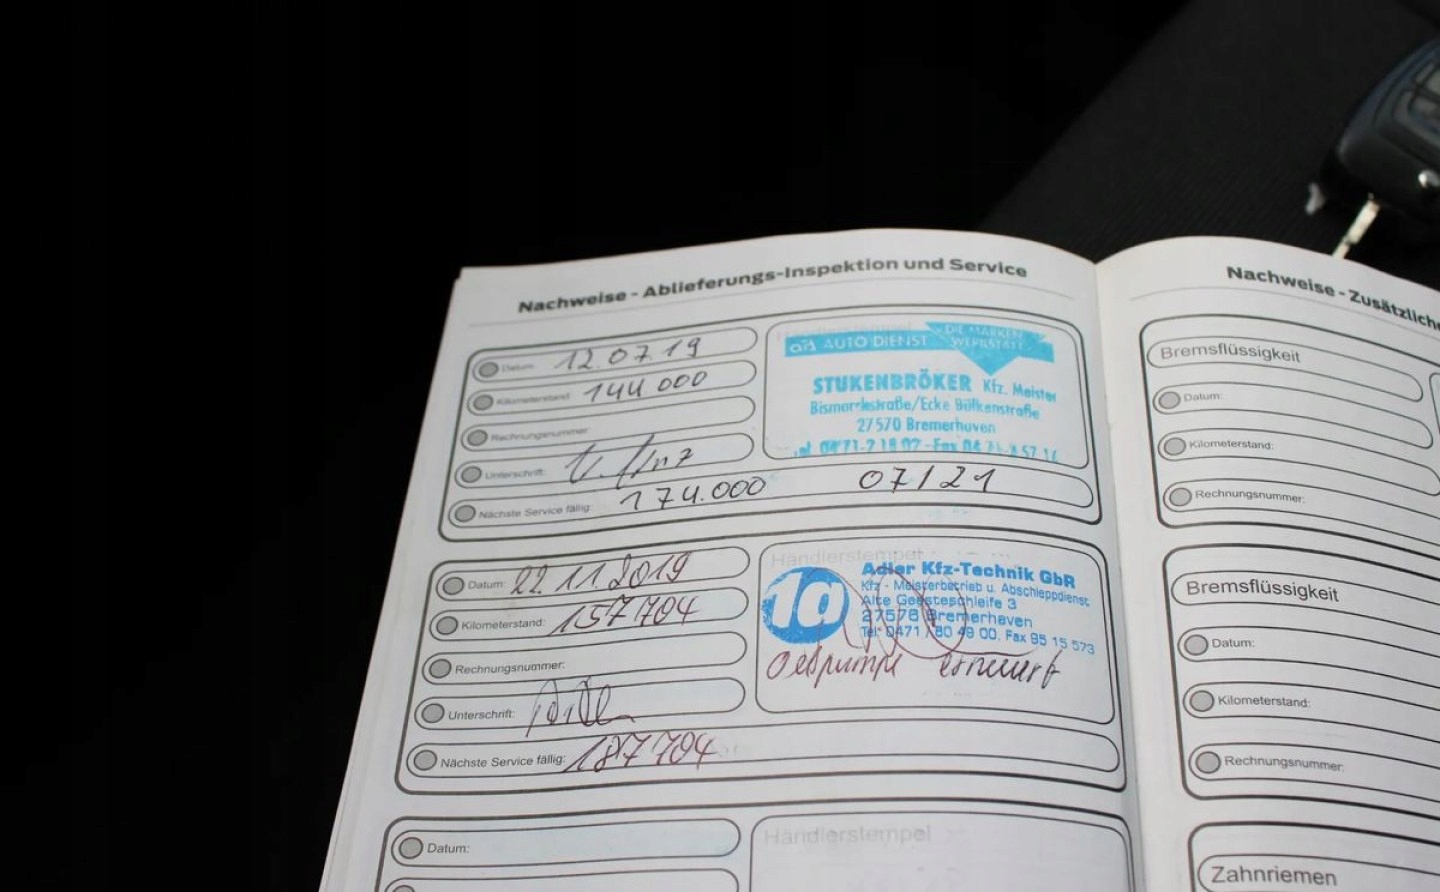 Nachweise - Ablieferungs-Inspektion und Service
Datum: 12.07.19
Kilometerstand: 144 000
Rechnungsnummer:
Unterschrift:
Nächste Service fällig: 174.000 07/21
AUTO DIENST
DIE MARKEN
WERKSTATT
STUKENBRÖKER Kfz. Meister
Bismarckstraße/Ecke Bülkenstraße
27570 Bremerhaven
Datum: 22.11.2019
Kilometerstand: 157704
Rechnungsnummer:
Unterschrift:
Nächste Service fällig: 187704
Händlerstempel
10
Adler Kfz-Technik GbR
Kfz - Meisterbetrieb u. Abschleppdienst
Alte Geesteschleife 3
27578 Bremerhaven
Tel: 0471 / 80 49 00, Fax 95 15 573
Oelpumpe erneuert
Datum:
Händlerstempel
Nachweise - Zusätzliche
Bremsflüssigkeit
Datum:
Kilometerstand:
Rechnungsnummer:
Bremsflüssigkeit
Datum:
Kilometerstand:
Rechnungsnummer:
Zahnriemen